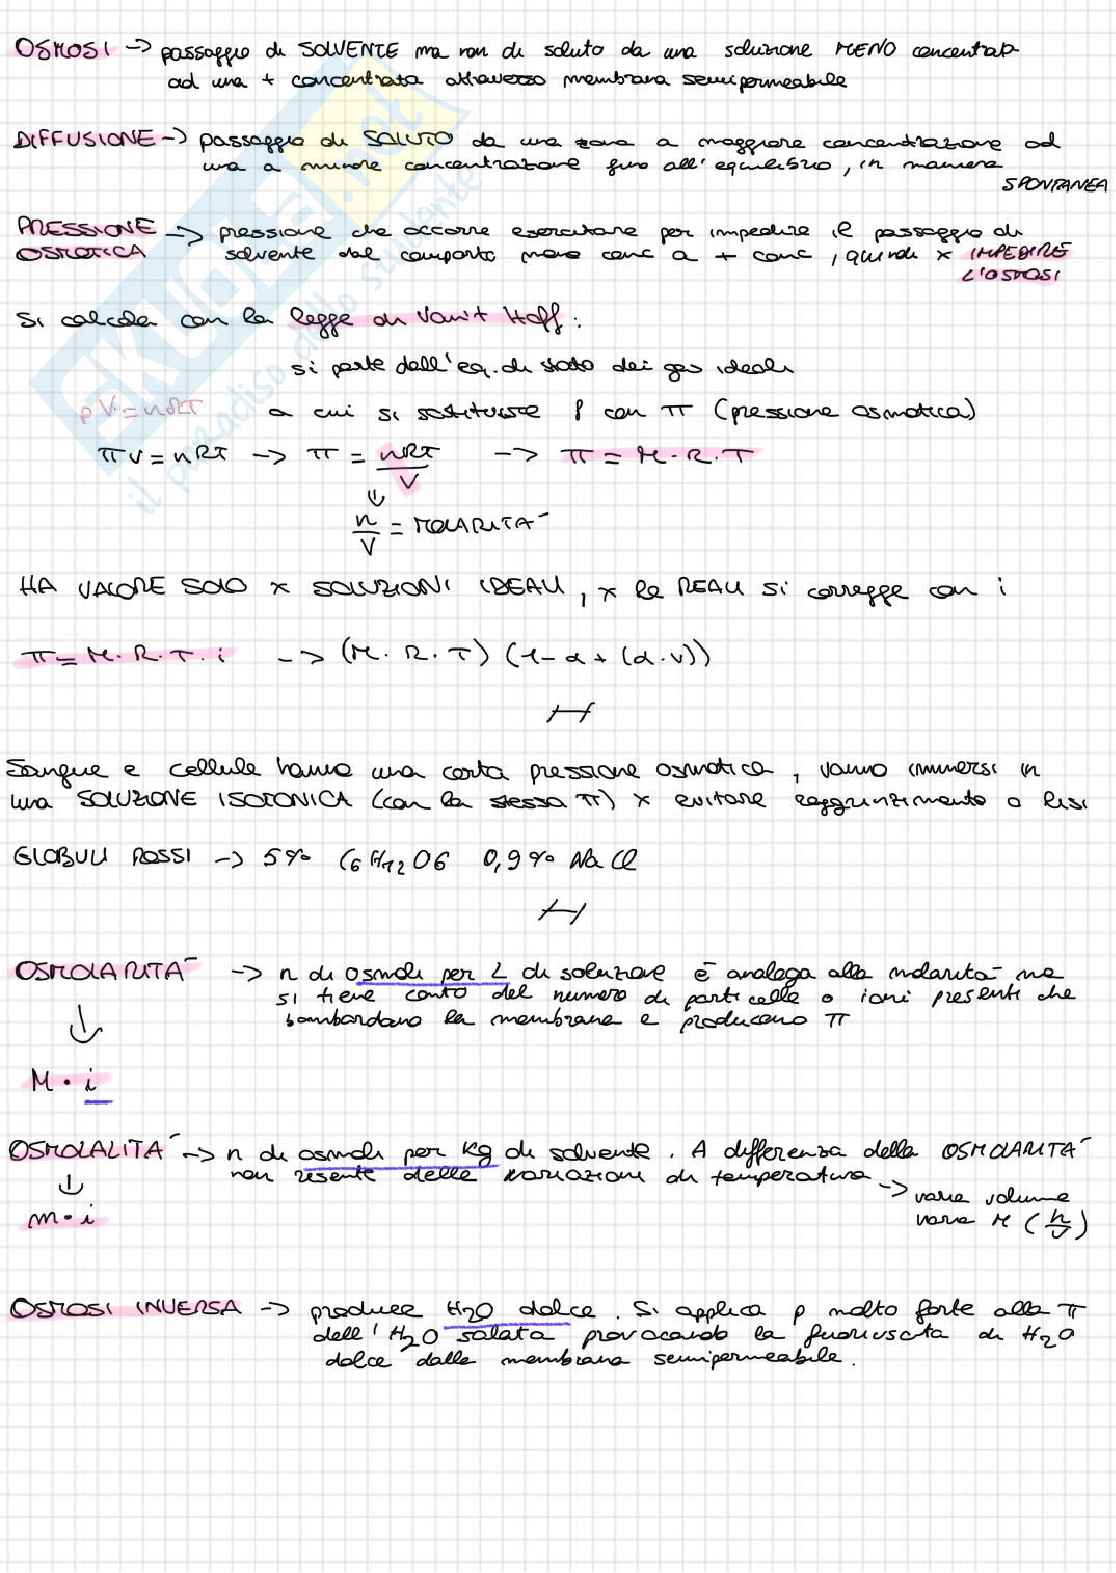 OSMOSI -> passaggio di SOLVENTE ma non di soluto da una soluzione MENO concentrata
ad una + concentrata attraverso membrana semipermeabile
DIFFUSIONE -> passaggio di SOLUTO da una zona a maggiore concentrazione ad
una a minore concentrazione fino all'equilibrio, in maniera
SPONTANEA
PRESSIONE OSMOTICA -> pressione che occorre esercitare per impedire il passaggio di
solvente dal comparto meno conc a + conc, quindi x IMPEDIRE
L'OSMOSI
Si calcola con la legge di Van't Hoff:
si parte dall'eq. di stato dei gas ideali
pV=nRT a cui si sostituisce p con π (pressione osmotica)
πv=nRT -> π = nRT/V -> π = M·R·T
↓
n/V = MOLARITA'
HA VALORE SOLO x SOLUZIONI IDEALI, x le REALI si corregge con i
π=M·R·T·i -> (M·R·T) (1-α+(α·v))
Sangue e cellule hanno una certa pressione osmotica, vanno immersi in
una SOLUZIONE ISOTONICA (con la stessa π) x evitare raggrinzimento o lisi
GLOBULI ROSSI -> 5% C6H12O6 0,9% NaCl
OSMOLARITA' -> n di osmoli per L di soluzione è analoga alla molarità ma
si tiene conto del numero di particelle o ioni presenti che
bombardano la membrana e producono π
↓
M·i
OSMOLALITA' -> n di osmoli per Kg di solvente. A differenza della OSMOLARITA'
non risente delle variazioni di temperatura -> varia volume
↓
m·i
varia M (n/V)
OSMOSI INVERSA -> produrre H2O dolce. Si applica p molto forte alla π
dell'H2O salata provocando la fuoriuscita di H2O
dolce dalla membrana semipermeabile.
SKUOLA.net
il paradiso dello studente